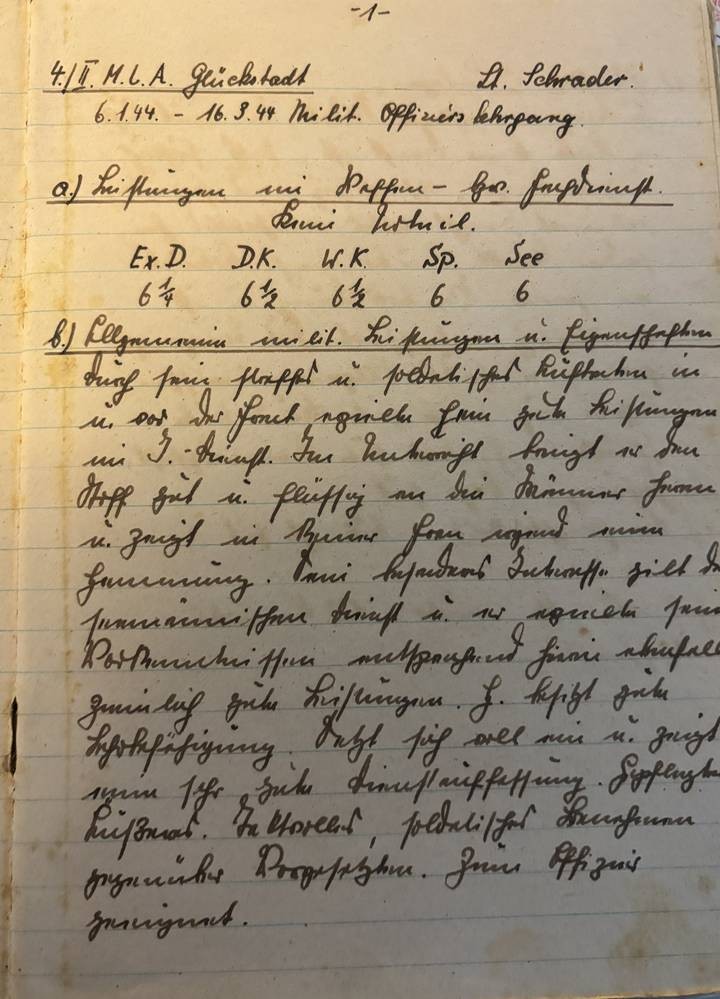 -1-
4./II. M.L.A. Glückstadt Lt. Schrader.
6.1.44. - 16.3.44 Milit. Offizierslehrgang.
a.) Leistungen im Waffen- bzw. Fachdienst.
Kein Urteil.
Ex.D. D.K. W.K. Sp. See
6 1/4 6 1/2 6 1/2 6 6
b.) Allgemeine milit. Leistungen u. Eigenschaften
Durch sein straffes u. soldatisches Auftreten in
u. vor der Front erzielte er gute Leistungen
im I.-Dienst. Im Unterricht bringt er den
Stoff gut u. flüssig an die Männer heran
u. zeigt in keiner Form irgend eine
Hemmung. Sein besonderes Interesse gilt de
seemännischen Dienst u. er erzielte sein
Vorkenntnissen entsprechend hierin ebenfall
ziemlich gute Leistungen. H. besitzt gute
Lehrbefähigung. Setzt sich voll ein u. zeigt
eine sehr gute Dienstauffassung. Gepflegte
Äußeres. Taktvolles, soldatisches Benehmen
gegenüber Vorgesetzten. Zum Offizier
geeignet.